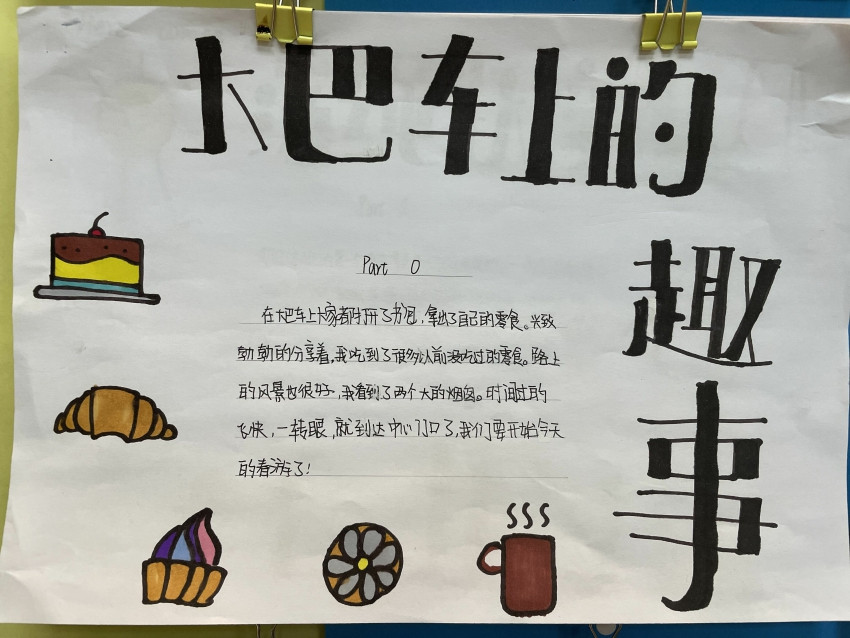 大巴车上的
趣事
Part 0
在大巴车上大家都打开了书包，拿出了自己的零食。兴致
勃勃的分享着，我吃到了很多以前没吃过的零食。路上
的风景也很好，我看到了两个大的烟囱。时间过的
飞快，一转眼，就到达中心门口了，我们要开始今天
的春游了！